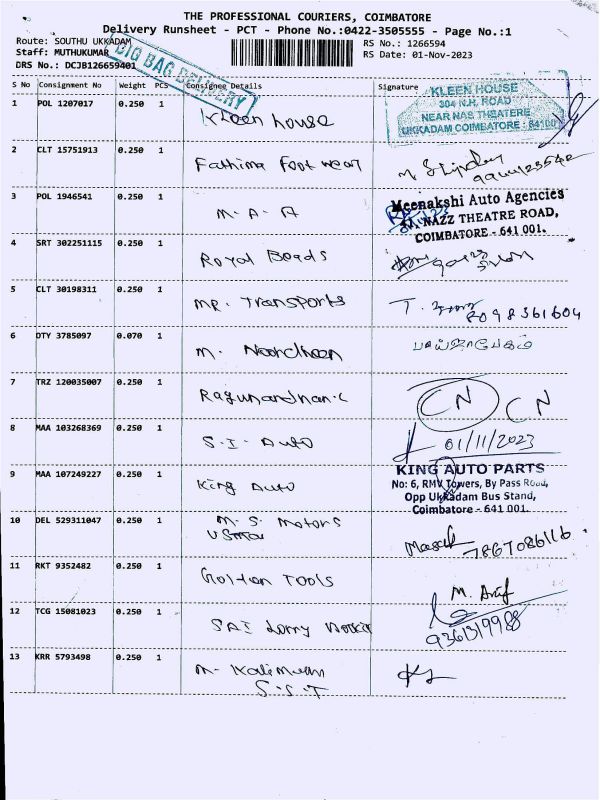 THE PROFESSIONAL COURIERS, COIMBATORE
Delivery Runsheet - PCT - Phone No.:0422-3505555 - Page No.:1
Route: SOUTHU UKKADAM
RS No.: 1266594
Staff: MUTHUKUMAR
RS Date: 01-Nov-2023
DRS No.: DCJB126659401
BIG BAG DELIVERY
S No Consignment No Weight PCS Consignee Details Signature
1 POL 1207017 0.250 1 Kleen house
KLEEN HOUSE
304 N.H. ROAD
NEAR NAS THEATERE
UKKADAM COIMBATORE - 641001
2 CLT 15751913 0.250 1 Fathima Foot wear
3 POL 1946541 0.250 1 M. A. A
Meenakshi Auto Agencies
NAZZ THEATRE ROAD,
COIMBATORE - 641 001.
4 SRT 302251115 0.250 1 Royal Beads
5 CLT 30198311 0.250 1 MR. Transports T.
8098361604
6 DTY 3785097 0.070 1 M. Noordheen
7 TRZ 120035007 0.250 1 Ragunandhan.C CN CN
8 MAA 103268369 0.250 1 S.I. Auto 01/11/2023
9 MAA 107249227 0.250 1 King Auto
KING AUTO PARTS
No: 6, RMV Towers, By Pass Road,
Opp Ukkadam Bus Stand,
Coimbatore - 641 001.
10 DEL 529311047 0.250 1 M. S. Motors
7867086116
11 RKT 9352482 0.250 1 Golden TOOLS M. Arif
12 TCG 15081023 0.250 1 SAI Lorry
9361319988
13 KRR 5793498 0.250 1 M.
S.S.T